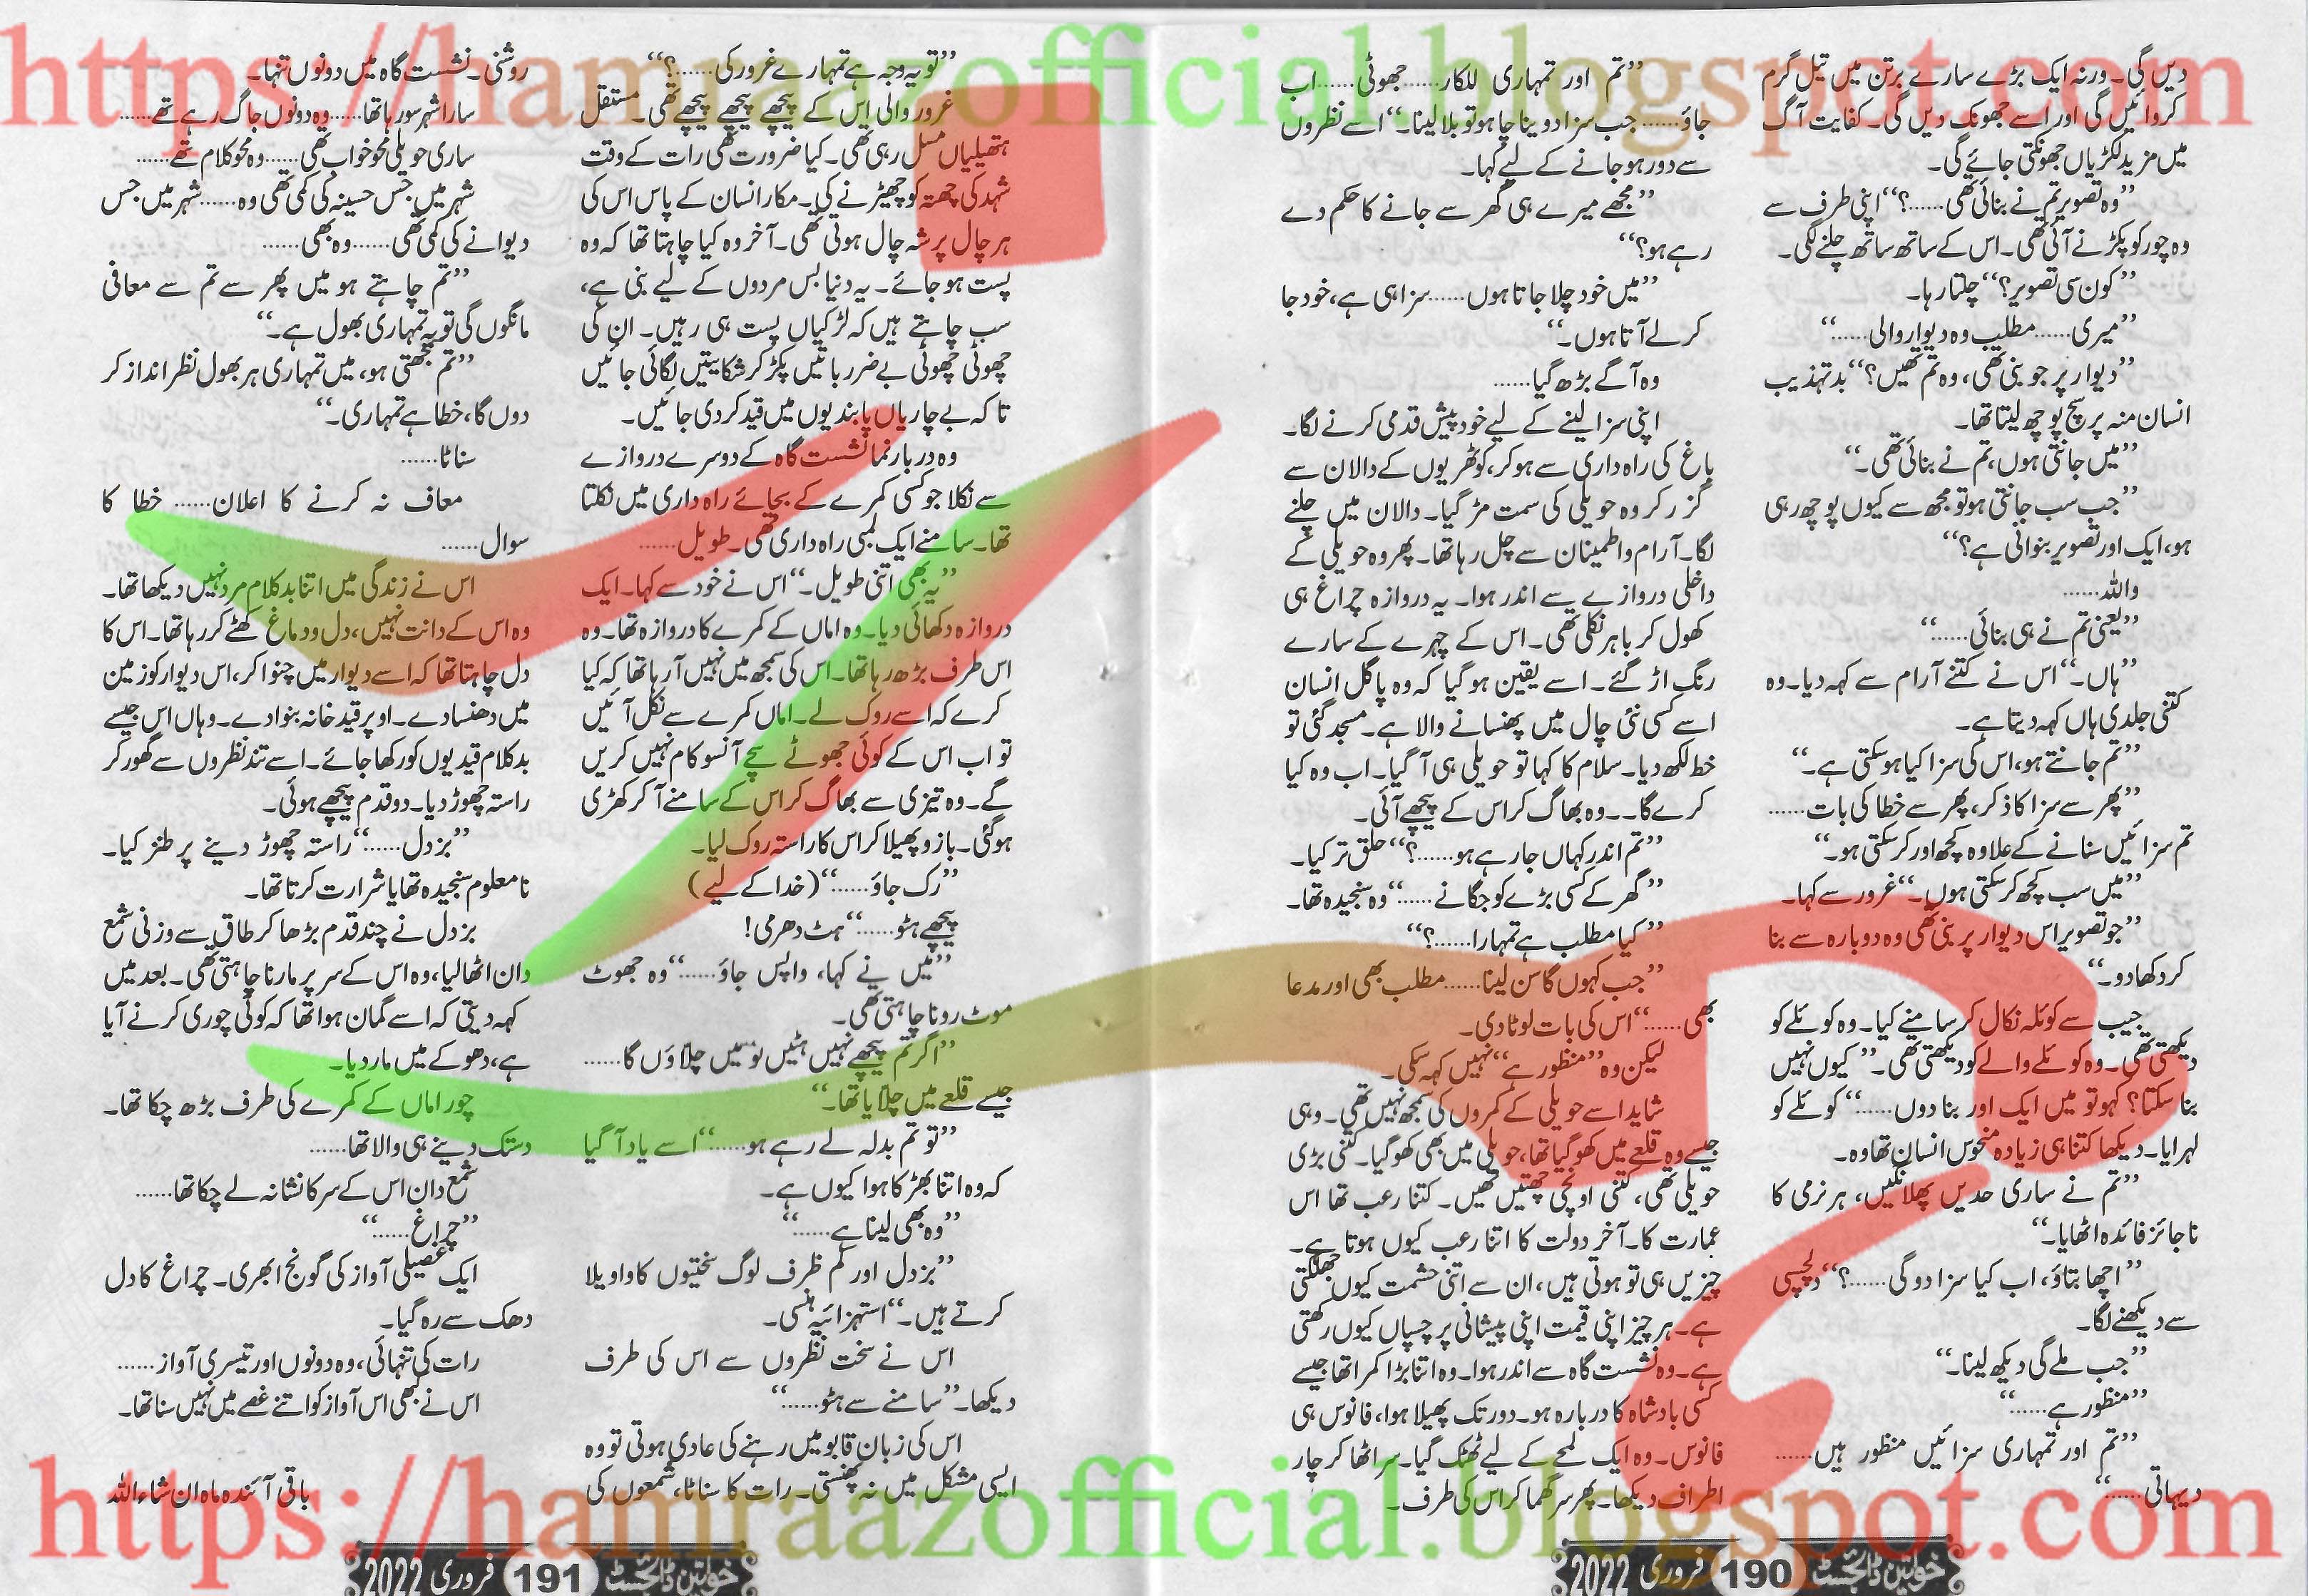 https://hamraazofficial.blogspot.com
دیں گی۔ ورنہ ایک بڑے سارے برتن میں تیل گرم
کروائیں گی اور اسے جھونک دیں گی۔ کفایت آگ
میں مزید لکڑیاں جھونکتی جائے گی۔
’’وہ تصویر تم نے بنائی تھی......؟‘‘ اپنی طرف سے
وہ چور کو پکڑنے آئی تھی۔ اس کے ساتھ ساتھ چلنے لگی۔
’’کون سی تصویر؟‘‘ چلتا رہا۔
’’میری...... مطلب وہ دیوار والی......‘‘
’’دیوار پر جو بنی تھی، وہ تم تھیں؟‘‘ بد تہذیب
انسان منہ پر سچ پوچھ لیتا تھا۔
’’میں جانتی ہوں، تم نے بنائی تھی۔‘‘
’’جب سب جانتی ہو تو مجھ سے کیوں پوچھ رہی
ہو، ایک اور تصویر بنوانی ہے؟‘‘
واللہ......
’’یعنی تم نے ہی بنائی......‘‘
’’ہاں۔‘‘ اس نے کتنے آرام سے کہہ دیا۔ وہ
کتنی جلدی ہاں کہہ دیتا ہے۔
’’تم جانتے ہو، اس کی سزا کیا ہو سکتی ہے۔‘‘
’’پھر سے سزا کا ذکر، پھر سے خطا کی بات......
تم سزائیں سنانے کے علاوہ کچھ اور کر سکتی ہو۔‘‘
’’میں سب کچھ کر سکتی ہوں۔‘‘ غرور سے کہا۔
’’جو تصویر اس دیوار پر بنی تھی وہ دوبارہ سے بنا
کر دکھا دو۔‘‘
جیب سے کوئلہ نکال کر سامنے کیا۔ وہ کوئلے کو
دیکھتی تھی۔ وہ کوئلے والے کو دیکھتی تھی۔ ’’کیوں نہیں
بنا سکتا؟ کہو تو میں ایک اور بنا دوں......‘‘ کوئلے کو
لہرایا۔ دیکھا کتنا ہی زیادہ منحوس انسان تھا وہ۔
’’تم نے ساری حدیں پھلانگیں، ہر نرمی کا
ناجائز فائدہ اٹھایا۔‘‘
’’اچھا بتاؤ، اب کیا سزا دو گی......؟‘‘ دلچسپی
سے دیکھنے لگا۔
’’جب ملے گی دیکھ لینا۔‘‘
’’منظور ہے......‘‘
’’تم اور تمہاری سزائیں منظور ہیں......
دیہاتی......‘‘
’’تم اور تمہاری للکار...... جھوٹی...... اب
جاؤ...... جب سزا دو بنا چاہو تو بلا لینا۔‘‘ اسے نظروں
سے دور ہو جانے کے لیے کہا۔
’’مجھے میرے ہی گھر سے جانے کا حکم دے
رہے ہو؟‘‘
’’میں خود چلا جاتا ہوں...... سزا ہی ہے، خود جا
کر لے آتا ہوں۔‘‘
وہ آگے بڑھ گیا......
اپنی سزا لینے کے لیے خود پیش قدمی کرنے لگا۔
باغ کی راہ داری سے ہو کر، کوٹھریوں کے دالان سے
گزر کر وہ حویلی کی سمت مڑ گیا۔ دالان میں چلنے
لگا۔ آرام و اطمینان سے چل رہا تھا۔ پھر وہ حویلی کے
داخلی دروازے سے اندر ہوا۔ یہ دروازہ چراغ ہی
کھول کر باہر نکلی تھی۔ اس کے چہرے کے سارے
رنگ اڑ گئے۔ اسے یقین ہو گیا کہ وہ پاگل انسان
اسے کسی نئی چال میں پھنسانے والا ہے۔ مسجد گئی تو
خط لکھ دیا۔ سلام کا کہا تو حویلی ہی آ گیا۔ اب وہ کیا
کرے گا۔۔ وہ بھاگ کر اس کے پیچھے آئی۔
’’تم اندر کہاں جا رہے ہو......؟‘‘ حلق تر کیا۔
’’گھر کے کسی بڑے کو جگانے......‘‘ وہ سنجیدہ تھا۔
’’کیا مطلب ہے تمہارا......؟‘‘
’’جب کہوں گا سن لینا...... مطلب بھی اور مدعا
بھی......‘‘ اس کی بات لوٹا دی۔
لیکن وہ ’’منظور ہے‘‘ نہیں کہہ سکی۔
شاید اسے حویلی کے کمروں کی سمجھ نہیں تھی۔ وہی
جیسے وہ قلعے میں کھو گیا تھا، حویلی میں بھی کھو گیا۔ کتنی بڑی
حویلی تھی، کتنی اونچی چھتیں تھیں۔ کتنا رعب تھا اس
عمارت کا۔ آخر دولت کا اتنا رعب کیوں ہوتا ہے۔
چیزیں ہی تو ہوتی ہیں، ان سے اتنی حشمت کیوں جھلکتی
ہے۔ ہر چیز اپنی قیمت اپنی پیشانی پر چسپاں کیوں رکھتی
ہے۔ وہ نشست گاہ سے اندر ہوا۔ وہ اتنا بڑا کمرا تھا جیسے
کسی بادشاہ کا دربار ہو۔ دور تک پھیلا ہوا، فانوس ہی
فانوس۔ وہ ایک لمحے کے لیے ٹھٹک گیا۔ سر اٹھا کر چار
اطراف دیکھا۔ پھر سر گھما کر اس کی طرف۔
خواتین ڈائجسٹ 190 فروری 2022
’’تو یہ وجہ ہے تمہارے غرور کی......؟‘‘
غرور والی اس کے پیچھے پیچھے تھی۔ مستقل
ہتھیلیاں مسل رہی تھی۔ کیا ضرورت تھی رات کے وقت
شہد کی چھتہ کو چھیڑنے کی۔ مکار انسان کے پاس اس کی
ہر چال پر شہ چال ہوتی تھی۔ آخر وہ کیا چاہتا تھا کہ وہ
پست ہو جائے۔ یہ دنیا بس مردوں کے لیے بنی ہے،
سب چاہتے ہیں کہ لڑکیاں پست ہی رہیں۔ ان کی
چھوٹی چھوٹی بے ضرر باتیں پکڑ کر شکایتیں لگائی جائیں
تاکہ بے چاریاں پابندیوں میں قید کر دی جائیں۔
وہ دربار نما نشست گاہ کے دوسرے دروازے
سے نکلا جو کسی کمرے کے بجائے راہ داری میں نکلتا
تھا۔ سامنے ایک لمبی راہ داری تھی۔ طویل......
’’یہ بھی اتنی طویل۔‘‘ اس نے خود سے کہا۔ ایک
دروازہ دکھائی دیا۔ وہ اماں کے کمرے کا دروازہ تھا۔ وہ
اس طرف بڑھ رہا تھا۔ اس کی سمجھ میں نہیں آ رہا تھا کہ کیا
کرے کہ اسے روک لے۔ اماں کمرے سے نکل آئیں
تو اب اس کے کوئی جھوٹے سچے آنسو کام نہیں کریں
گے۔ وہ تیزی سے بھاگ کر اس کے سامنے آ کر کھڑی
ہو گئی۔ بازو پھیلا کر اس کا راستہ روک لیا۔
’’رک جاؤ......‘‘ (خدا کے لیے)
پیچھے ہٹو......‘‘ ہٹ دھرمی!
’’میں نے کہا، واپس جاؤ......‘‘ وہ جھوٹ
موٹ رونا چاہتی تھی۔
’’اگر تم پیچھے نہیں ہٹیں تو میں چلاؤں گا......
جیسے قلعے میں چلایا تھا۔‘‘
’’تو تم بدلہ لے رہے ہو......‘‘ اسے یاد آ گیا
کہ وہ اتنا بھڑکا ہوا کیوں ہے۔
’’وہ بھی لینا ہے......‘‘
’’بزدل اور کم ظرف لوگ سختیوں کا واویلا
کرتے ہیں۔‘‘ استہزائیہ ہنسی۔
اس نے سخت نظروں سے اس کی طرف
دیکھا۔ ’’سامنے سے ہٹو......‘‘
اس کی زبان قابو میں رہنے کی عادی ہوتی تو وہ
ایسی مشکل میں نہ پھنستی۔ رات کا سناٹا، شمعوں کی
روشنی۔ نشست گاہ میں دونوں تنہا۔
سارا شہر سو رہا تھا...... وہ دونوں جاگ رہے تھے......
ساری حویلی محو خواب تھی...... وہ محو کلام تھے......
شہر میں جس حسینہ کی کمی تھی وہ...... شہر میں جس
دیوانے کی کمی تھی...... وہ بھی......
’’تم چاہتے ہو میں پھر سے تم سے معافی
مانگوں گی تو یہ تمہاری بھول ہے۔‘‘
’’تم سمجھتی ہو، میں تمہاری ہر بھول نظر انداز کر
دوں گا، خطا ہے تمہاری۔‘‘
سناٹا......
معاف نہ کرنے کا اعلان...... خطا کا
سوال......
اس نے زندگی میں اتنا بد کلام مرد نہیں دیکھا تھا۔
وہ اس کے دانت نہیں، دل و دماغ کھٹے کر رہا تھا۔ اس کا
دل چاہتا تھا کہ اسے دیوار میں چنوا کر، اس دیوار کو زمین
میں دھنسا دے۔ اوپر قید خانہ بنوا دے۔ وہاں اس جیسے
بد کلام قیدیوں کو رکھا جائے۔ اسے تند نظروں سے گھور کر
راستہ چھوڑ دیا۔ دو قدم پیچھے ہوئی۔
’’بزدل......‘‘ راستہ چھوڑ دینے پر طنز کیا۔
نامعلوم سنجیدہ تھا یا شرارت کرتا تھا۔
بزدل نے چند قدم بڑھا کر طاق سے وزنی شمع
دان اٹھا لیا، وہ اس کے سر پر مارنا چاہتی تھی۔ بعد میں
کہہ دیتی کہ اسے گمان ہوا تھا کہ کوئی چوری کرنے آیا
ہے، دھوکے میں مار دیا۔
چور اماں کے کمرے کی طرف بڑھ چکا تھا۔
دستک دینے ہی والا تھا......
شمع دان اس کے سر کا نشانہ لے چکا تھا......
’’چراغ......‘‘
ایک غصیلی آواز کی گونج ابھری۔ چراغ کا دل
دھک سے رہ گیا۔
رات کی تنہائی، وہ دونوں اور تیسری آواز......
اس نے کبھی اس آواز کو اتنے غصے میں نہیں سنا تھا۔
باقی آئندہ ماہ ان شاء اللہ
خواتین ڈائجسٹ 191 فروری 2022
https://hamraazofficial.blogspot.com